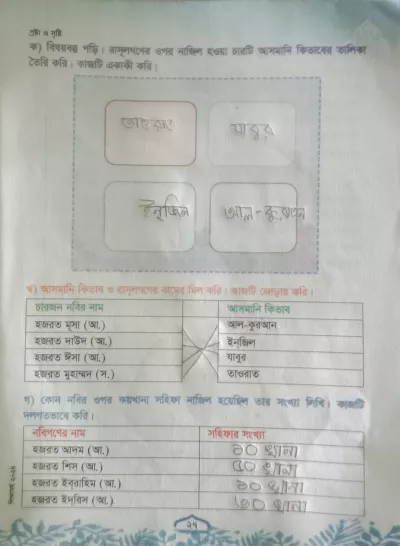 স্রষ্টা ও সৃষ্টি
ক) বিষয়বস্তু পড়ি। রাসুলগণের ওপর নাজিল হওয়া চারটি আসমানি কিতাবের তালিকা
তৈরি করি। কাজটি একাকী করি।
তাওরাত
যাবুর
ইনজিল
আল-কুরআন
খ) আসমানি কিতাব ও রাসুলগণের নামের মিল করি। কাজটি জোড়ায় করি।
চারজন নবির নাম
আসমানি কিতাব
হজরত মূসা (আ.)
আল-কুরআন
হজরত দাউদ (আ.)
ইনজিল
হজরত ঈসা (আ.)
যাবুর
হজরত মুহাম্মদ (স.)
তাওরাত
গ) কোন নবির ওপর কয়খানা সহিফা নাজিল হয়েছিল তার সংখ্যা লিখি। কাজটি
দলগতভাবে করি।
নবিগণের নাম
সহিফার সংখ্যা
হজরত আদম (আ.)
১০ খানা
হজরত শিস (আ.)
৫০ খানা
হজরত ইবরাহিম (আ.)
১০ খানা
হজরত ইদরিস (আ.)
৩০ খানা
২৭